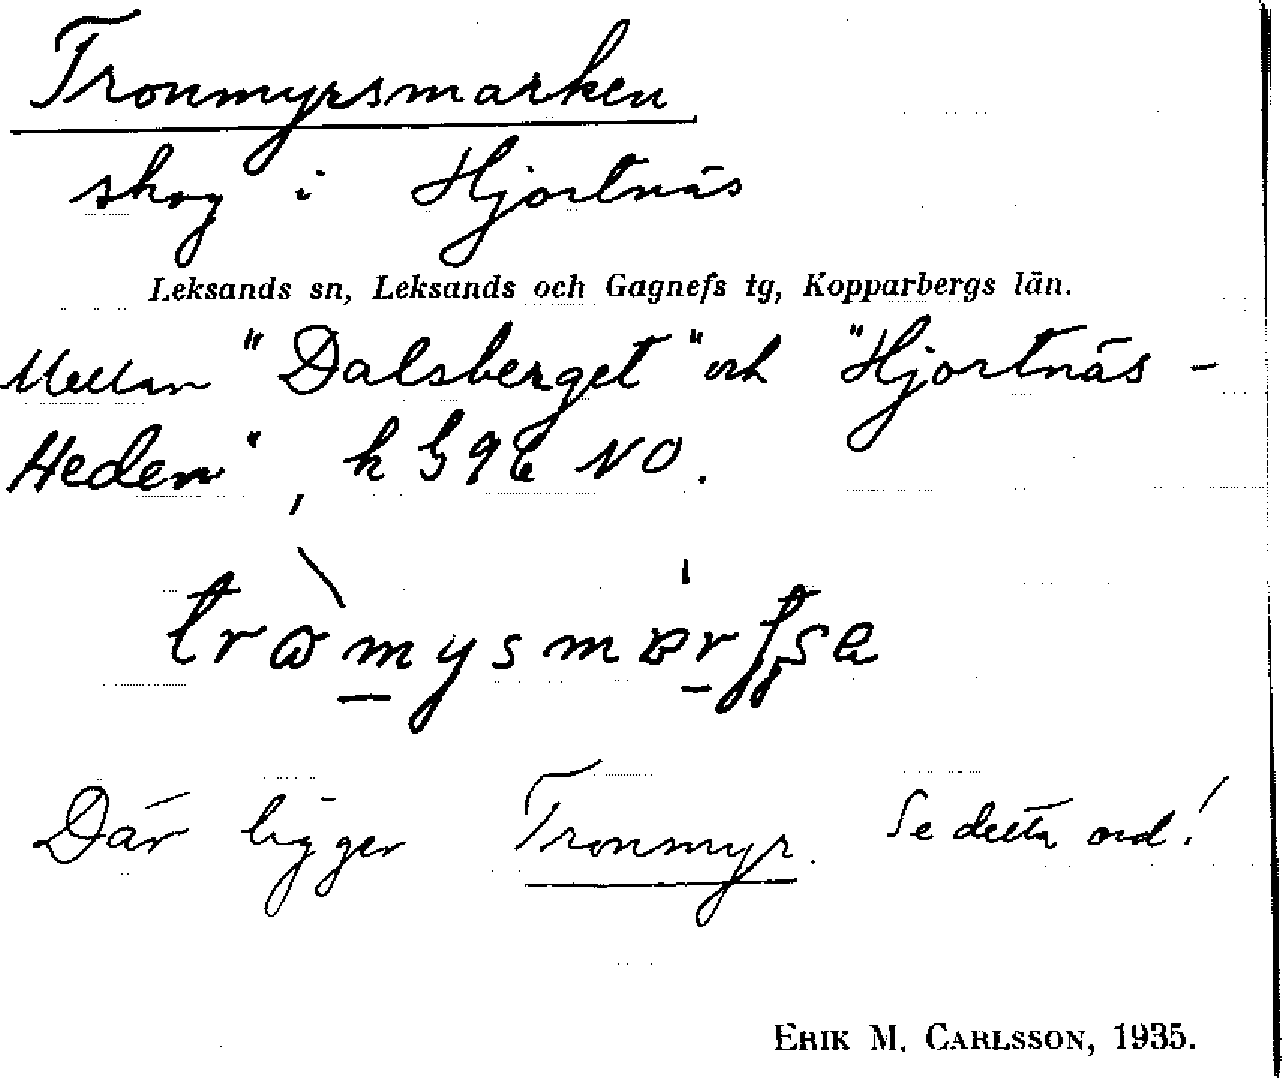 Tronmyrsmarken
skog i Hjortnäs
Leksands sn, Leksands och Gagnefs tg, Kopparbergs län.
Mellan "Dalsberget" och "Hjortnäs-
Heden", k NO.
Där ligger Tronmyr. Se detta ord!
ERIK M. CARLSSON, 1935.